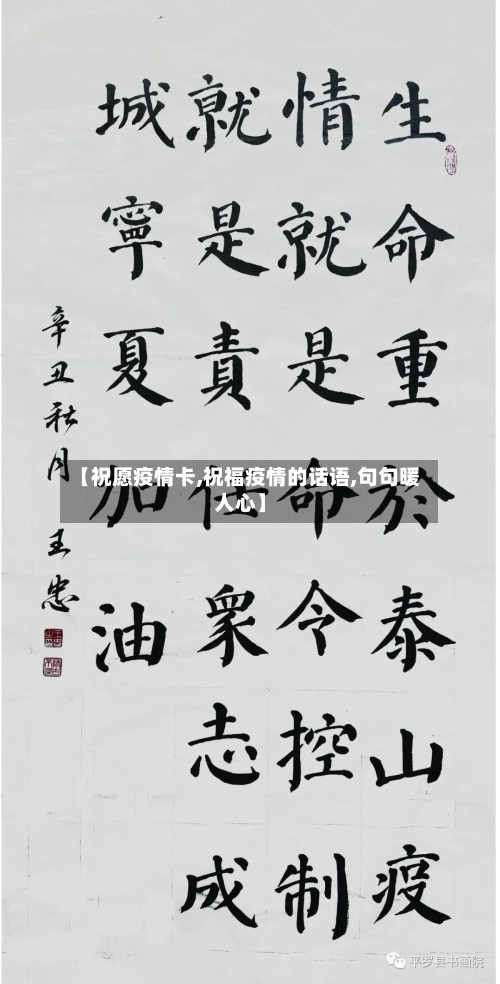 生命重於泰山疫
情就是命令控制
就是責任衆志成
城寧夏加油
辛丑秋月王忠
【祝愿疫情卡,祝福疫情的话语,句句暖
人心】
平罗县书画院